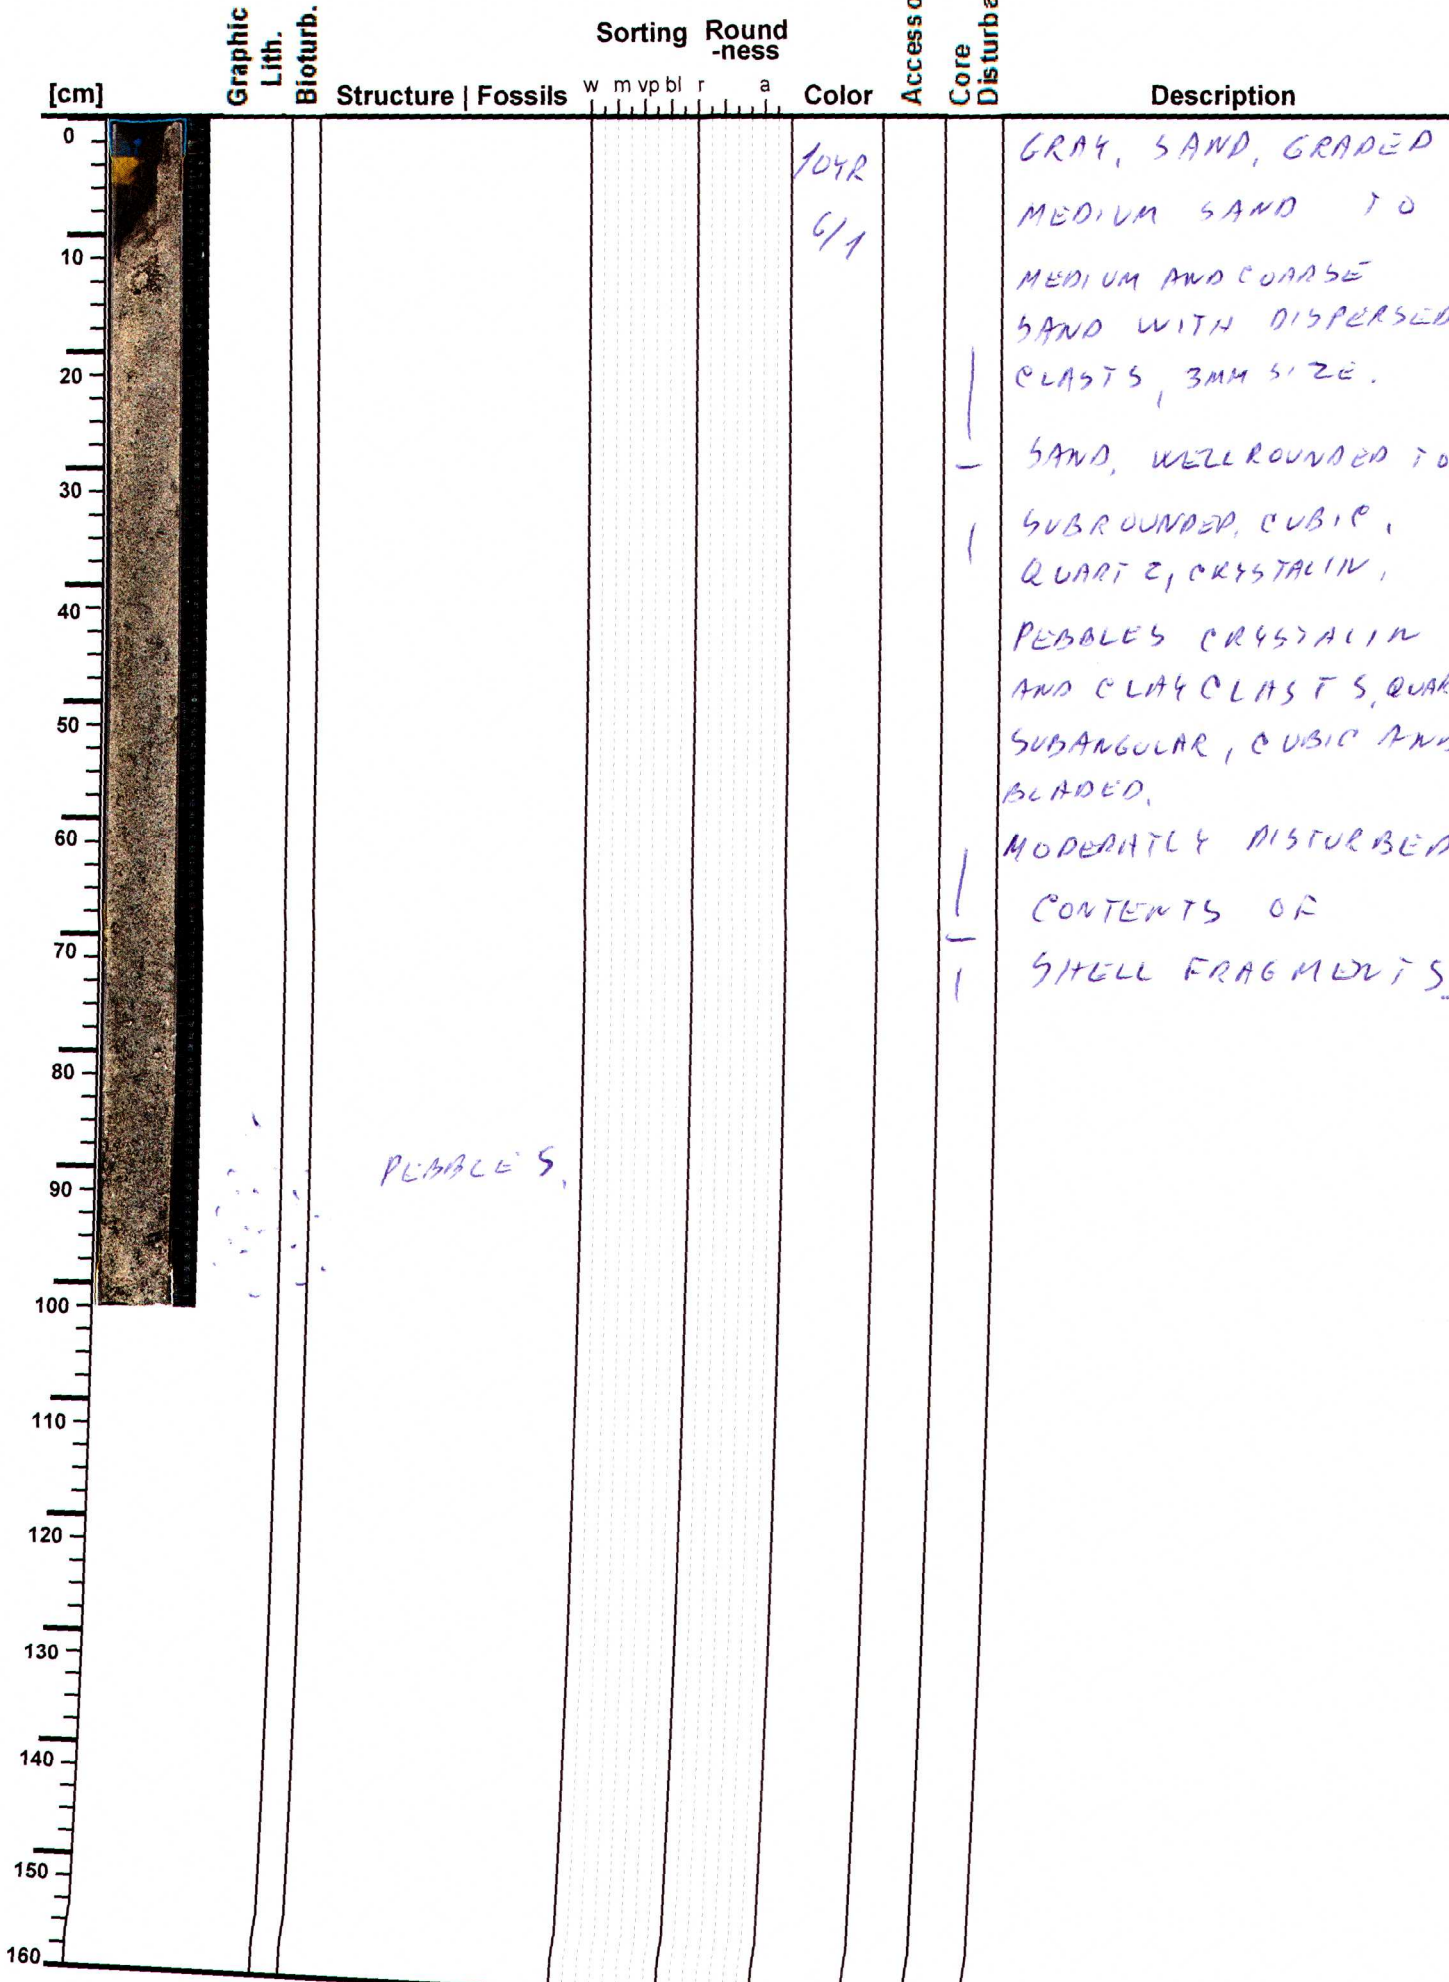 Graphic
Lith.
Bioturb.
Sorting Round
-ness
Core
Disturba
[cm]
Structure | Fossils
w m vp bl r a
Color
Accesso
Description
0
10
20
30
40
50
60
70
80
90
100
110
120
130
140
150
160
10YR
6/1
PEBBLES,
GRAY, SAND, GRADED
MEDIUM SAND TO
MEDIUM AND COARSE
SAND WITH DISPERSED
CLASTS, 3MM SIZE.
SAND, WELL ROUNDED TO
SUBROUNDED, CUBIC,
QUARTZ, CRYSTALIN,
PEBBLES CRYSTALIN
AND CLAYCLASTS, QUAR
SUBANGULAR, CUBIC AND
BLADED.
MODERATLY DISTURBED
CONTENTS OF
SHELL FRAGMENTS.